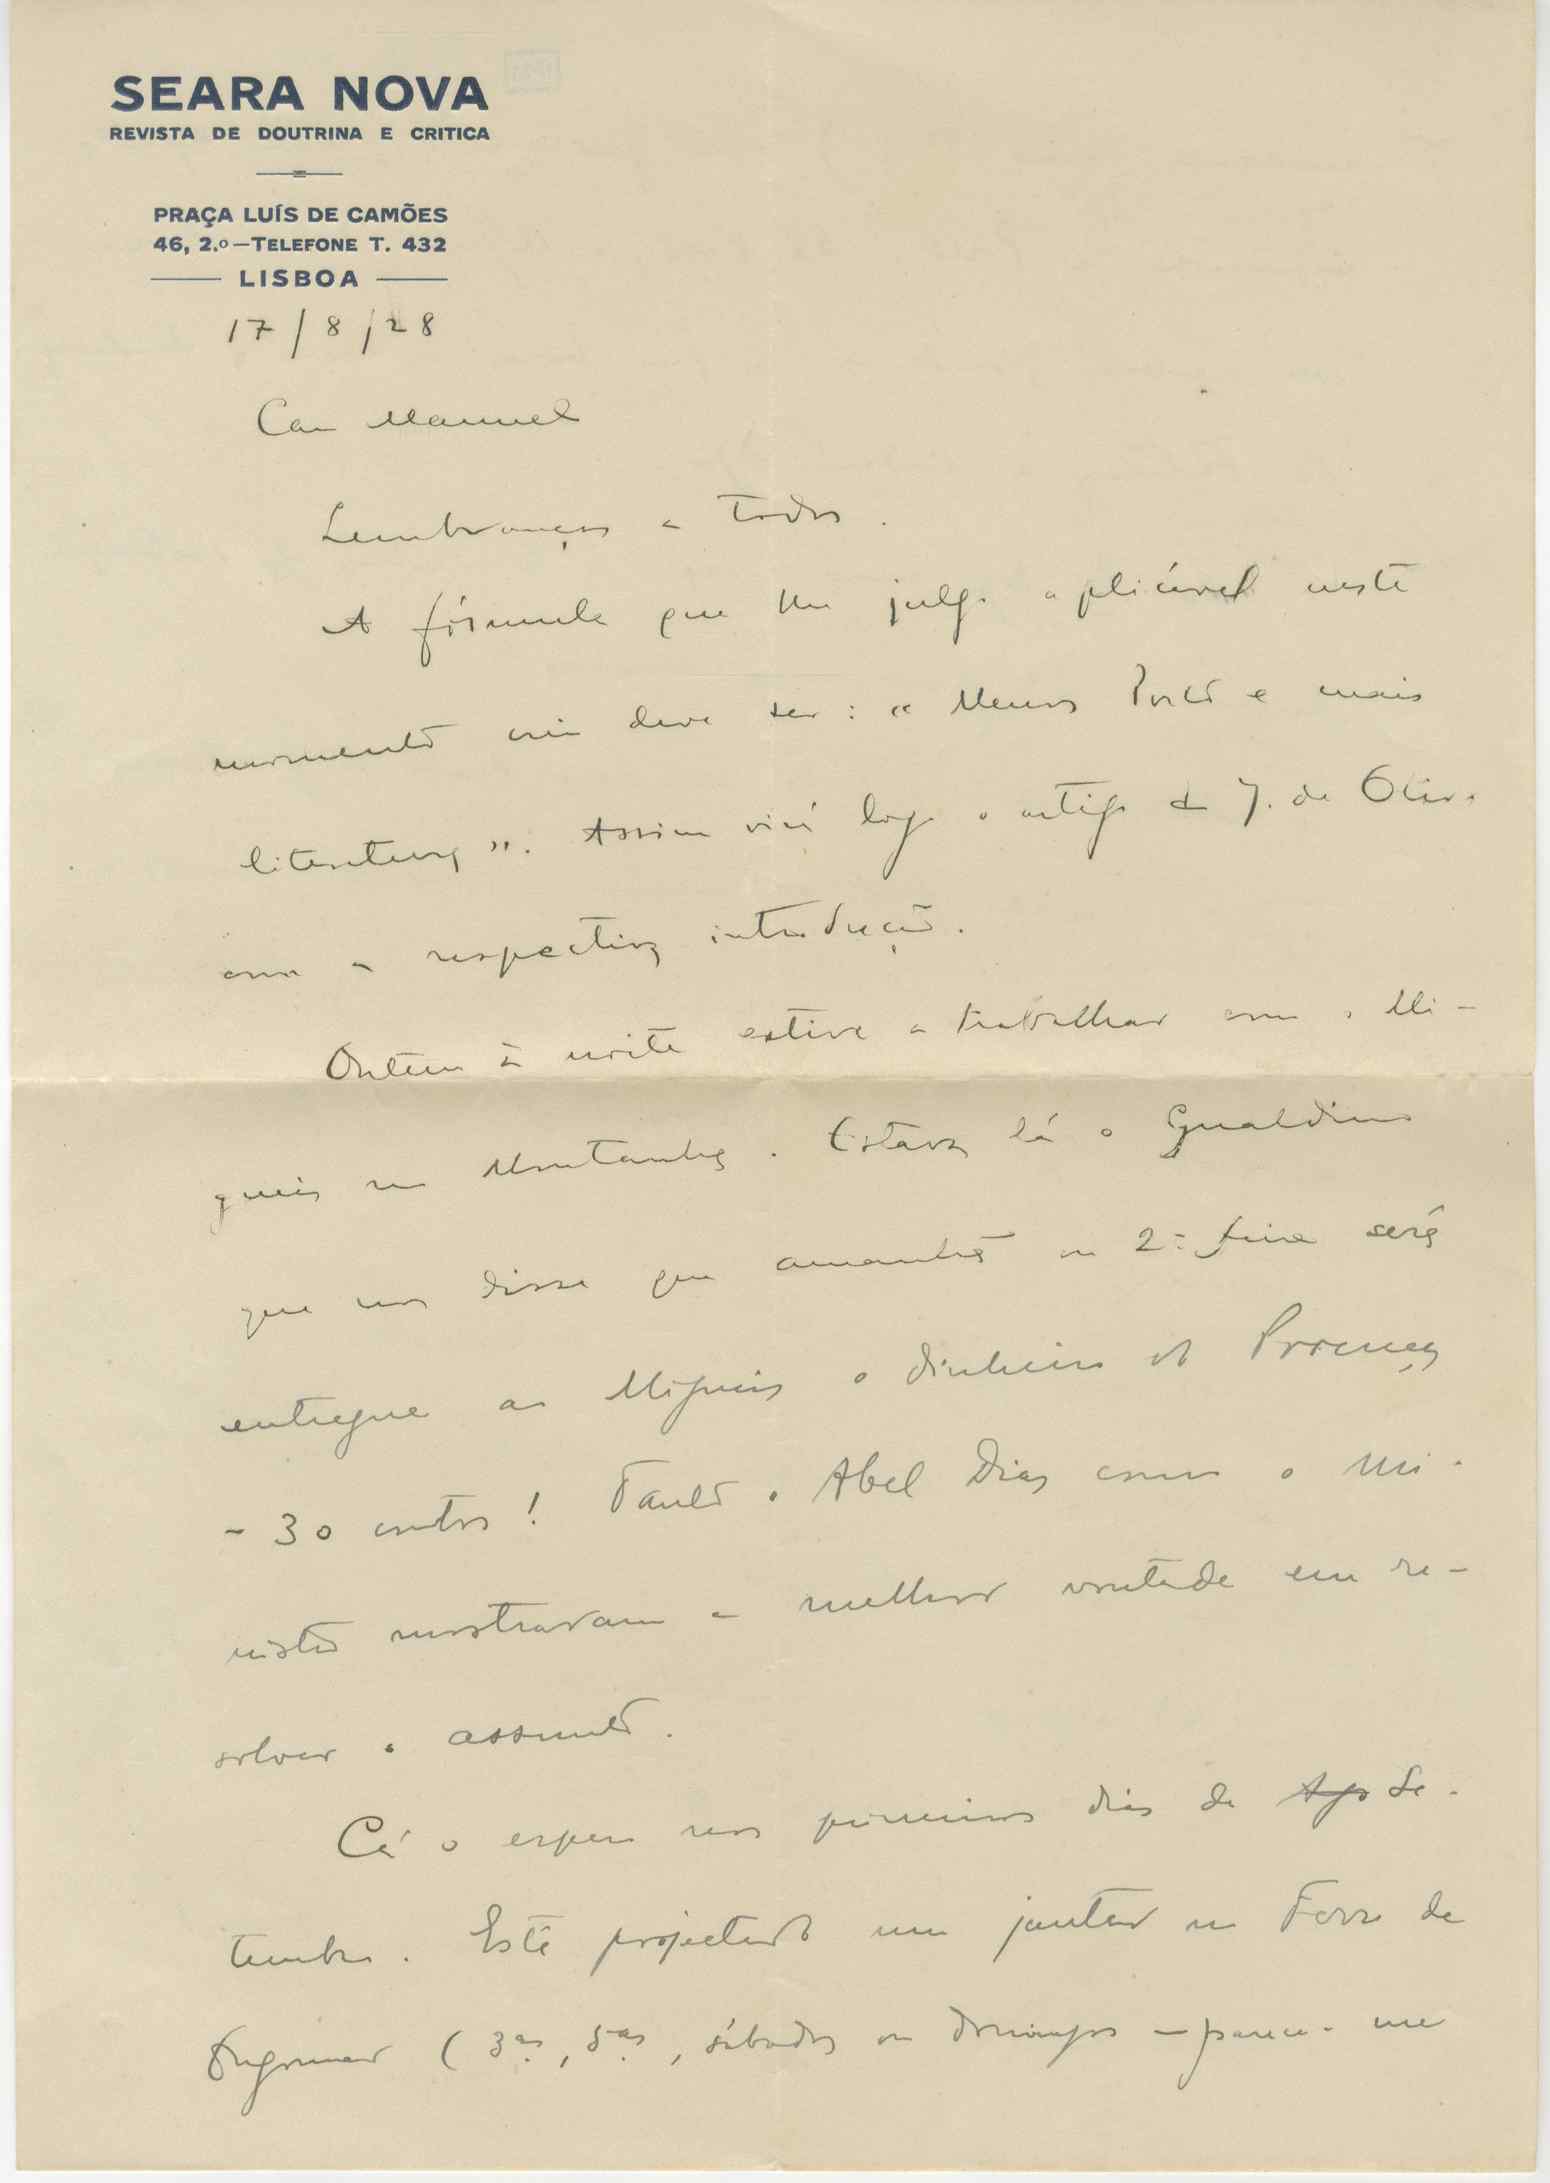 SEARA NOVA
REVISTA DE DOUTRINA E CRITICA
PRAÇA LUÍS DE CAMÕES
46, 2.º—TELEFONE T. 432
LISBOA
17/8/28
Caro Manuel
Lembranças a todos.
A fórmula que lhe julgo aplicável neste
momento deve ser: "Menos Porto e mais
literatura". Assim virá logo o artigo de J. de Oliv.
com a respectiva introdução.
Ontem à noite estive a trabalhar com o Mi-
gueis na Montanha. Estava lá o Gualdino
que nos disse que amanhã ou 2.ª feira será
entregue ao Migueis o dinheiro do Proença
- 30 contos! Tanto o Abel Dias como o mi-
nistro mostraram a melhor vontade em re-
solver o assunto.
Cá o espero nos primeiros dias de Ago Se-
tembro. Está projectado um jantar no Ferro de
Engomar (3.as, 5.as, sábados ou domingos - parece-me